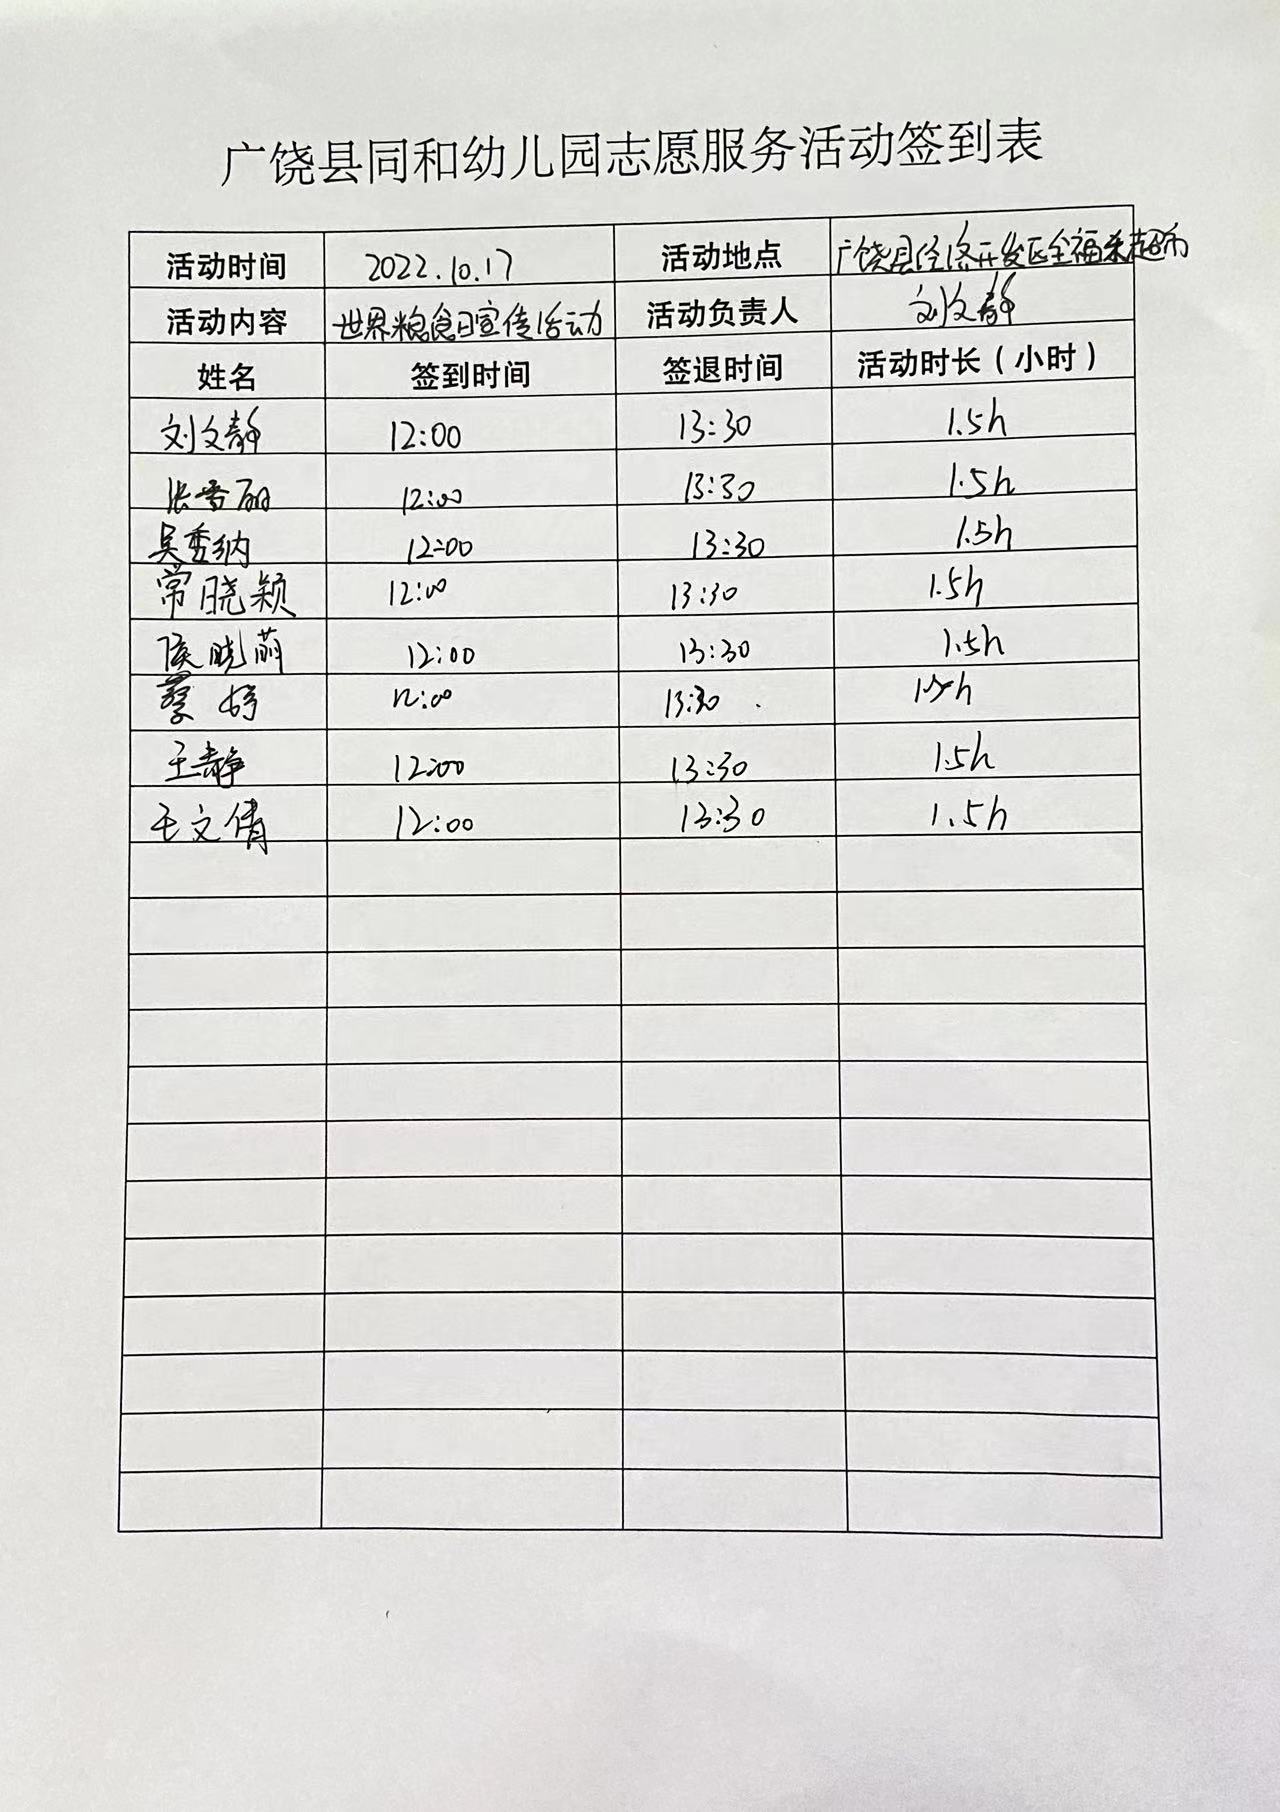 广饶县同和幼儿园志愿服务活动签到表
活动时间 2022.10.17 活动地点 广饶县经济开发区全福来超市
活动内容 世界粮食日宣传活动 活动负责人 刘文静
姓名 签到时间 签退时间 活动时长（小时）
刘文静 12:00 13:30 1.5h
张香丽 12:00 13:30 1.5h
吴秀纳 12:00 13:30 1.5h
常晓颖 12:00 13:30 1.5h
侯晓萌 12:00 13:30 1.5h
蔡婷 12:00 13:30 1.5h
王静 12:00 13:30 1.5h
王文倩 12:00 13:30 1.5h